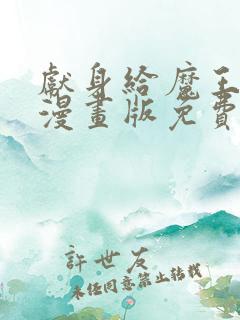 獻身給魔王
漫畫版免費
許世友
未經同意禁止轉載